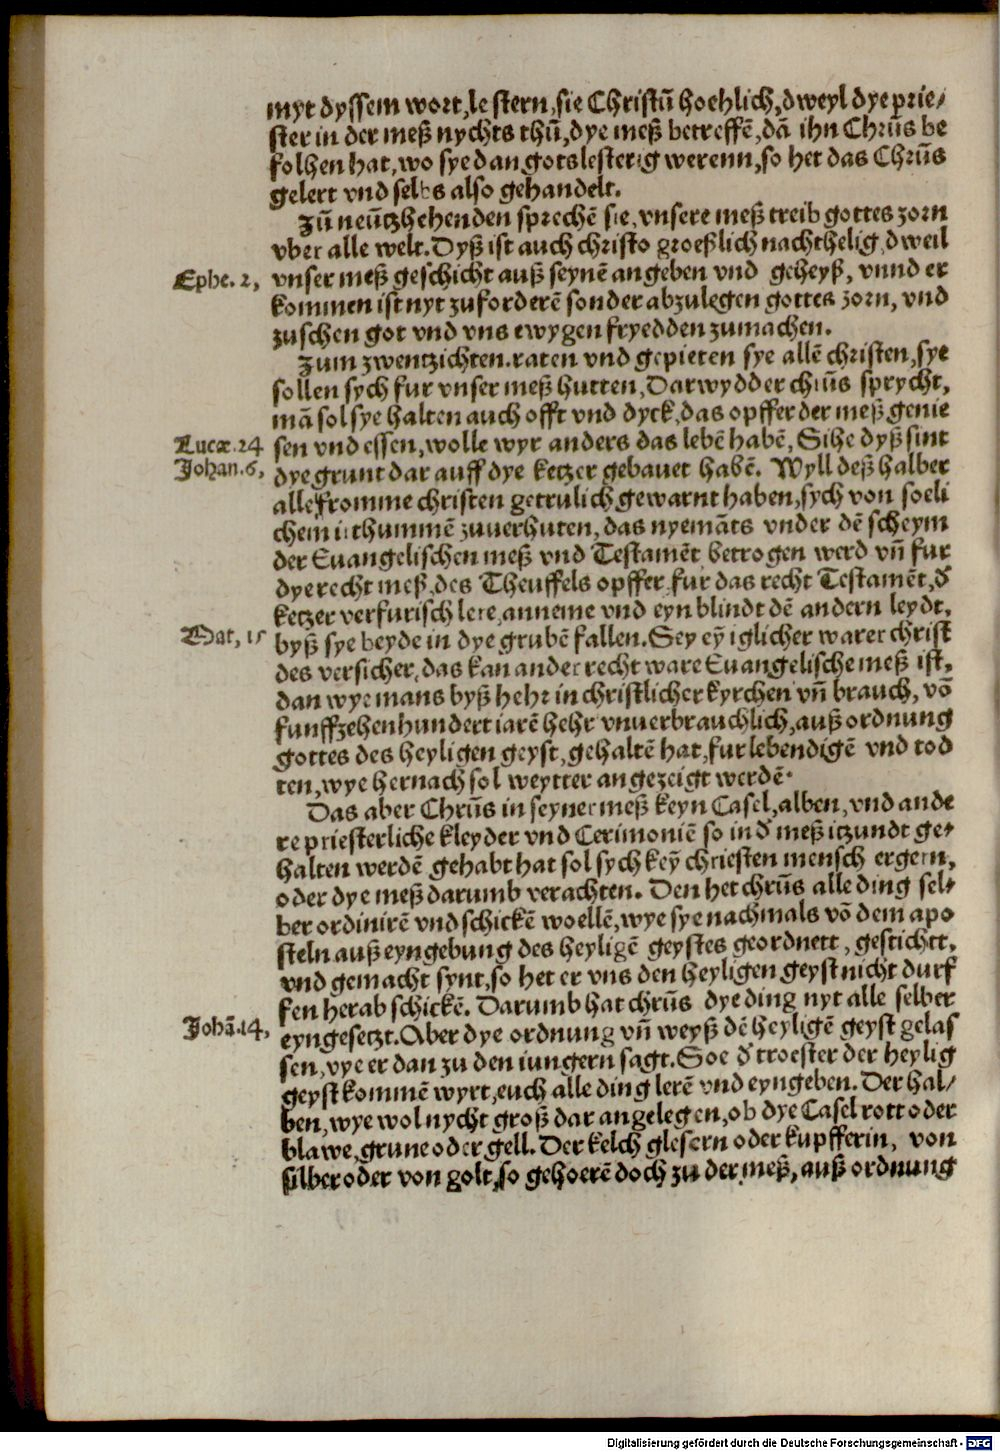 myt dyssem wort, le stern, sie Christū hoehlich, dweyl dye prie⸗
ster in der meß nychts thū, dye meß betreffē, dā ihn Chrūs be
folhen hat, wo sye dan gotslesterig werenn, so het das Chrūs
gelert vnd selbs also gehandelt.
Zū neūtzhehenden sprechē sie, vnsere meß treib gottes zorn
vber alle welt. Dyß ist auch christo groeßlich nachthelig, dweil
Ephe. 2, vnser meß geschicht auß seynē angeben vnd geheyß, vnnd er
kommen ist nyt zuforderē sonder abzulegen gottes zorn, vnd
zuschen got vnd vns ewygen fryedden zumachen.
Zum zwentzichten. raten vnd gepieten sye allē christen, sye
sollen sych fur vnser meß hutten, Darwydder chrūs sprycht,
mā sol sye halten auch offt vnd dyck, das opffer der meß genie
Lucæ. 24 sen vnd essen, wolle wyr anders das lebē habē, Sihe dyß sint
Johan. 6, dye grunt dar auff dye ketzer gebauet habē. Wyll deß halber
alle fromme christen getrulich gewarnt haben, sych von soeli
chem irthummē zuuerhuten, das nyemāts vnder dē scheym
der Euangelischen meß vnd Testamēt betrogen werd vn̄ fur
dye recht meß, des Theuffels opffer, fur das recht Testamēt, d̄
ketzer verfurisch lere, anneme vnd eyn blindt dē andern leydt,
Mat, 15 byß sye beyde in dye grubē fallen. Sey eȳ iglicher warer christ
des versicher, das kan ander recht ware Euangelische meß ist,
dan wye mans byß hehr in christlicher kyrchen vn̄ brauch, vō
funffzehenhundert iarē hehr vnuerbrauchlich, auß ordnung
gottes des heyligen geyst, gehaltē hat, fur lebendigē vnd tod
ten, wye hernach sol weytter angezeigt werdē.
Das aber Chrūs in seyner meß keyn Casel, alben, vnd ande
re priesterliche kleyder vnd Cerimoniē so in d̄ meß itzundt ge⸗
halten werdē gehabt hat sol sych keȳ chriesten mensch ergern,
oder dye meß darumb verachten. Den het chrūs alle ding sel⸗
ber ordinirē vnd schickē woellē, wye sye nachmals vō dem apo
steln auß eyngebung des heyligē geystes geordnett, gestichtt,
vnd gemacht synt, so het er vns den heyligen geyst nicht durf
fen herab schickē. Darumb hat chrūs dye ding nyt alle selber
Johā. 14, eyngesetzt. Aber dye ordnung vn̄ weyß dē heyligē geyst gelas
sen, vye er dan zu den iungern sagt. Soe d̄ troester der heylig
geyst kommē wyrt, euch alle ding lerē vnd eyngeben. Der hal⸗
ben, wye wol nycht groß dar angelegen, ob dye Casel rott oder
blawe, grune oder gell. Der kelch glesern oder kupfferin, von
silber oder von golt, so gehoerē doch zu der meß, auß ordnung
Digitalisierung gefördert durch die Deutsche Forschungsgemeinschaft - DFG